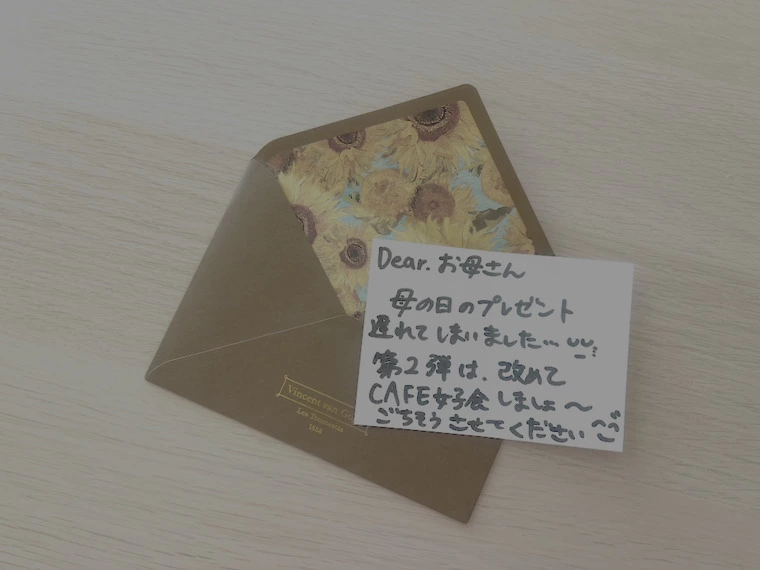 Dear. お母さん
母の日のプレゼント
遅れてしまいました…
第2弾は、改めて
CAFE女子会しましょ〜
ごちそうさせてください
Vincent van Go
Les Tournesols
1888